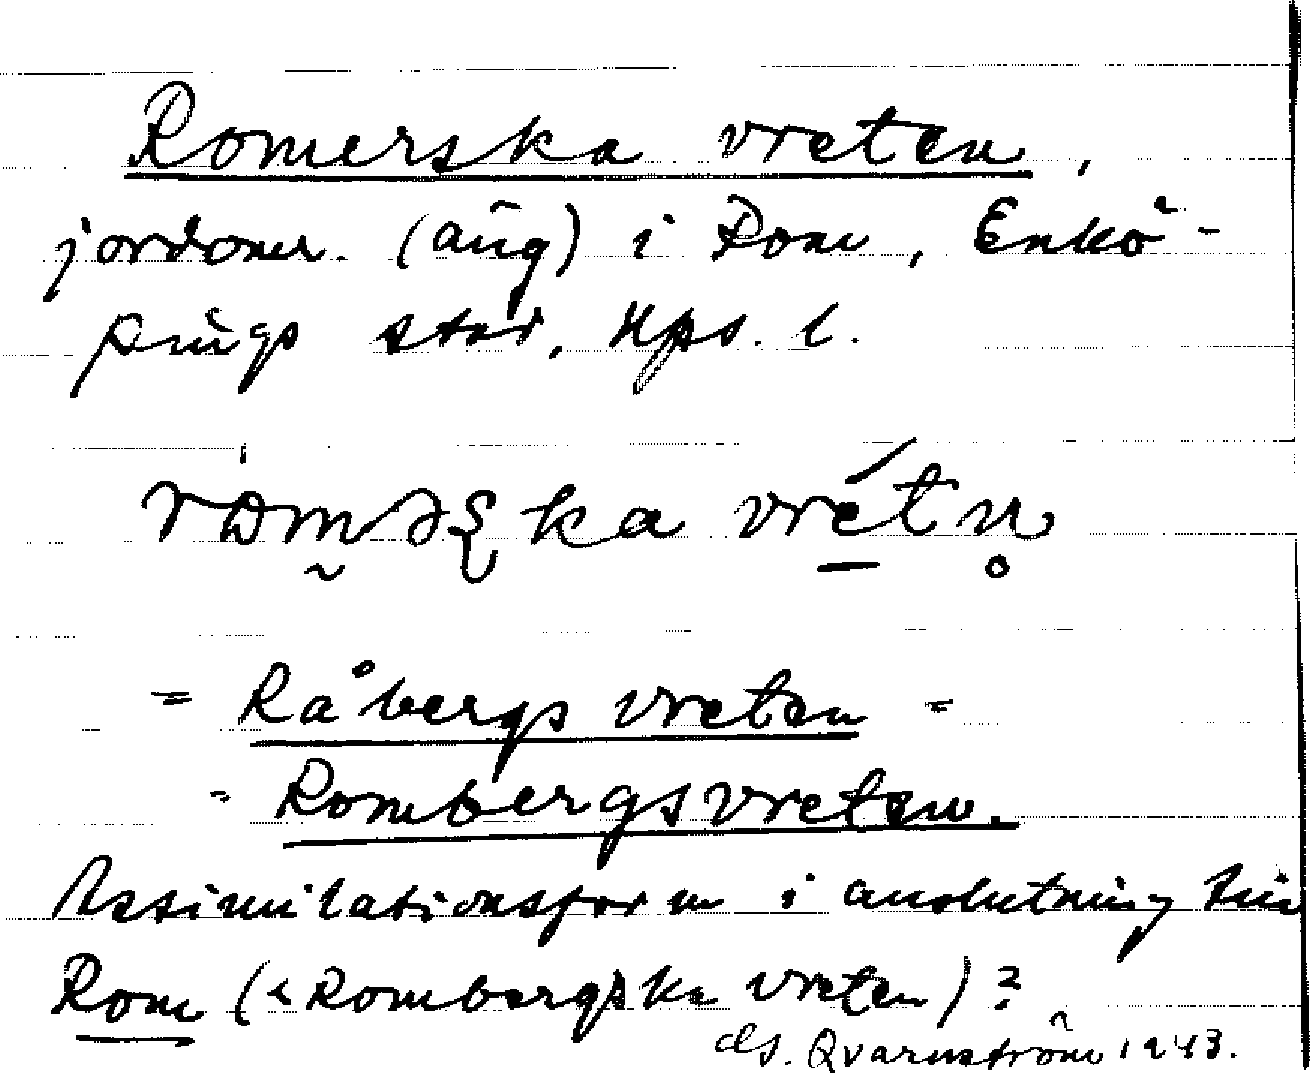 Romerska vreten,
jordområ. (äng) i Rom, Enkö-
pings stad, Ups. l.
vreten
= Råbergs vreten =
= Rombergsvreten.
Assimilationsform i anslutning till
Rom (< Rombergska vreten)?
G. Qvarnström 1943.